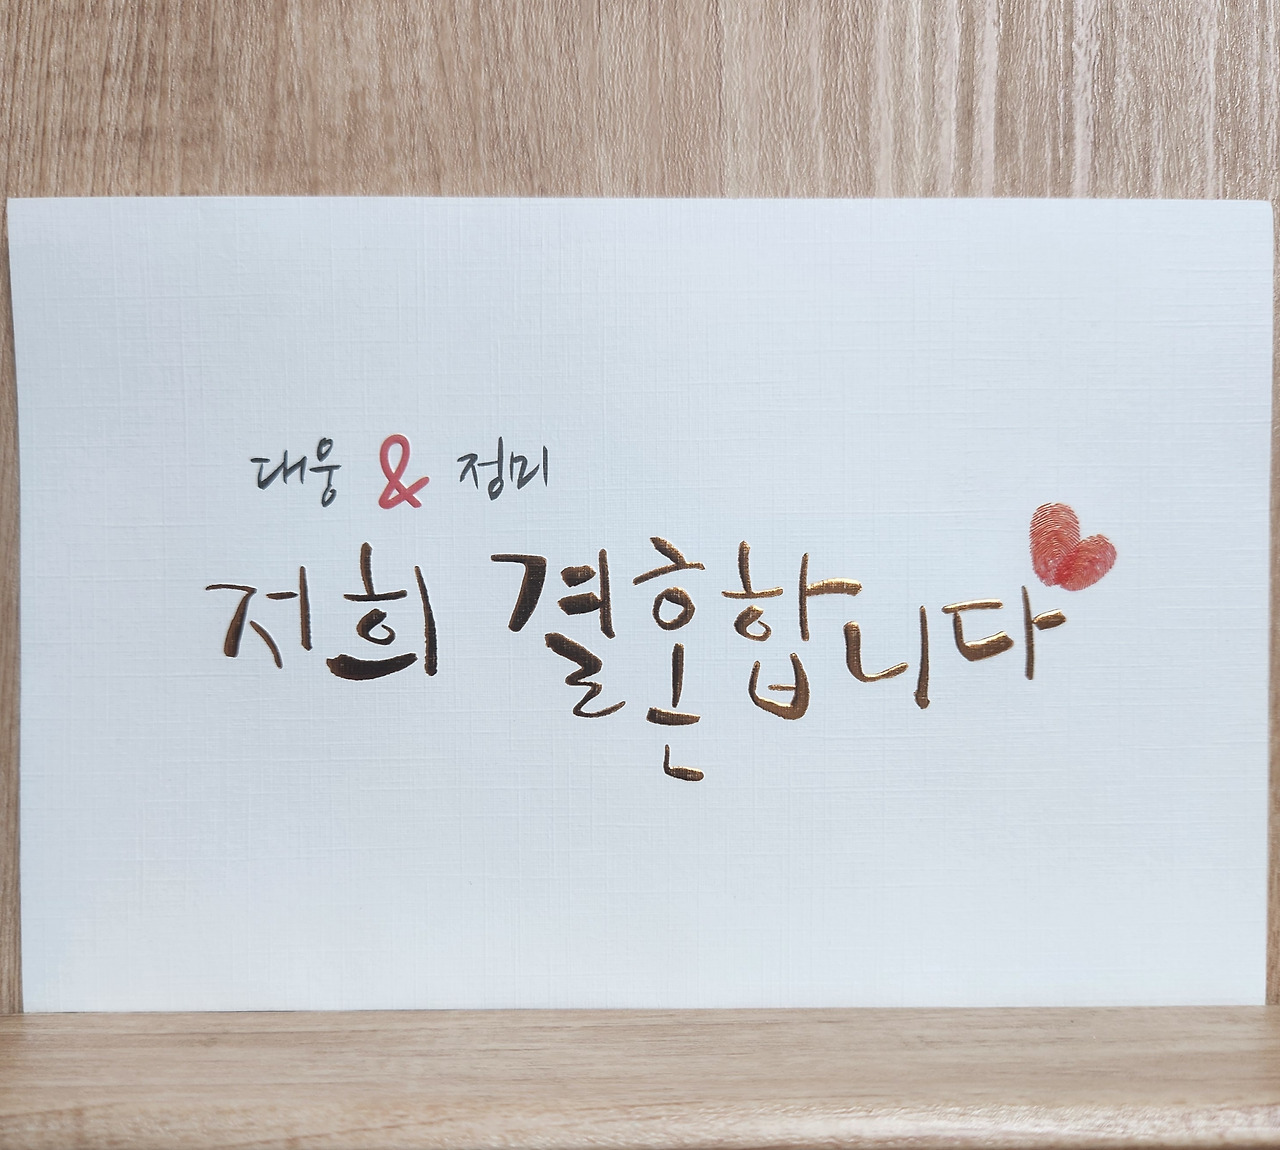 대웅 & 정미
저희 결혼합니다